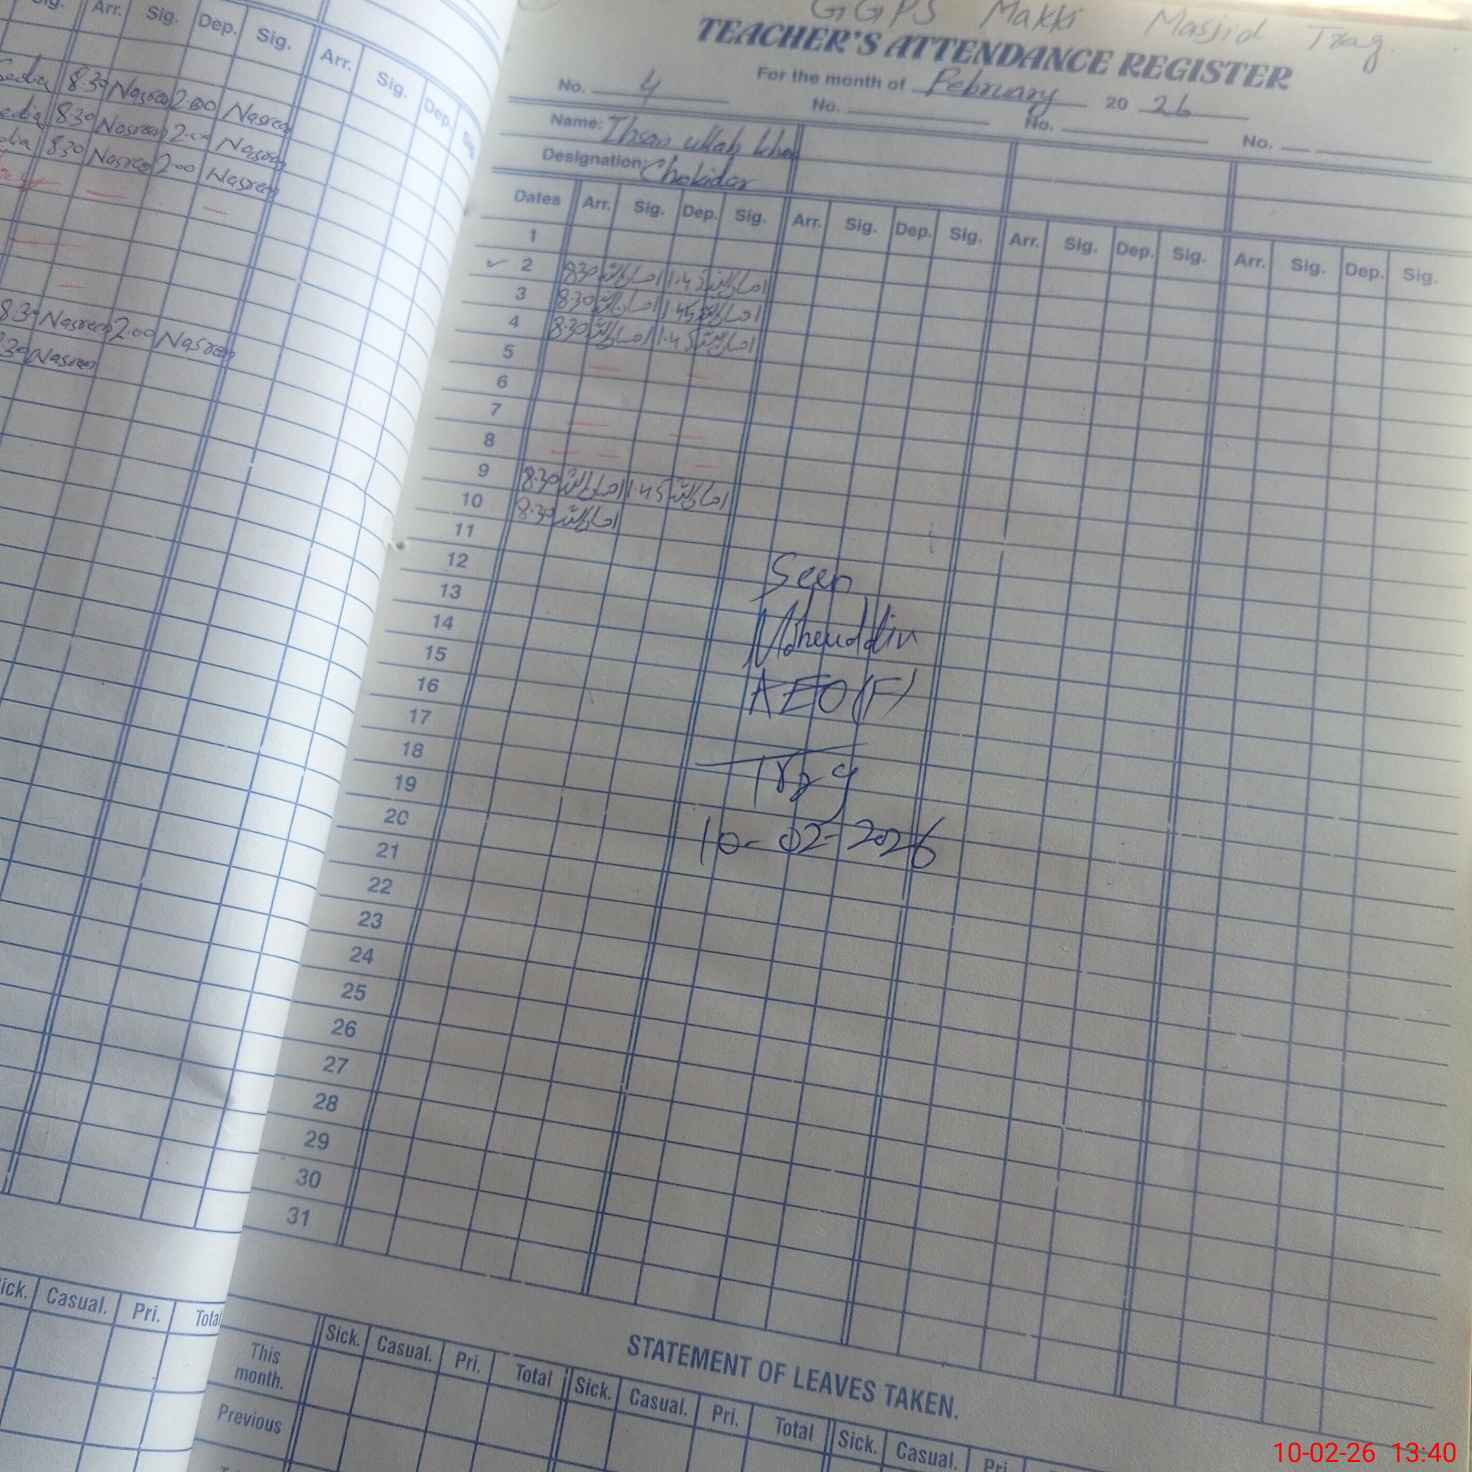 Sig. Arr. Sig. Dep. Sig. Arr. Sig. Dep. Sig.
8.30 Nasreen 2.00 Nasreen
8.30 Nasreen 2.00 Nasreen
8.30 Nasreen 2.00 Nasreen
8.30 Nasreen 2.00 Nasreen
8.30 Nasreen
Sick. Casual. Pri. Total
GGPS Makki Masjid Trag
TEACHER'S ATTENDANCE REGISTER
For the month of February 20 26
No. 4 No. No. No.
Name: Ihsan ullah khan
Designation: Chokidar
Dates Arr. Sig. Dep. Sig. Arr. Sig. Dep. Sig. Arr. Sig. Dep. Sig. Arr. Sig. Dep. Sig.
1
2 8.30 1.45
3 8.30 1.45
4 8.30 1.45
5
6
7
8
9 8.30 1.45
10 8.30
11
12
13
14
15
16
17
18
19
20
21
22
23
24
25
26
27
28
29
30
31
Seen
AEO (F)
10-02-2026
STATEMENT OF LEAVES TAKEN.
Sick. Casual. Pri. Total Sick. Casual. Pri. Total Sick. Casual. Pri.
This month.
Previous
10-02-26 13:40